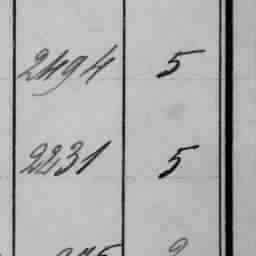 2494 5
2231 5